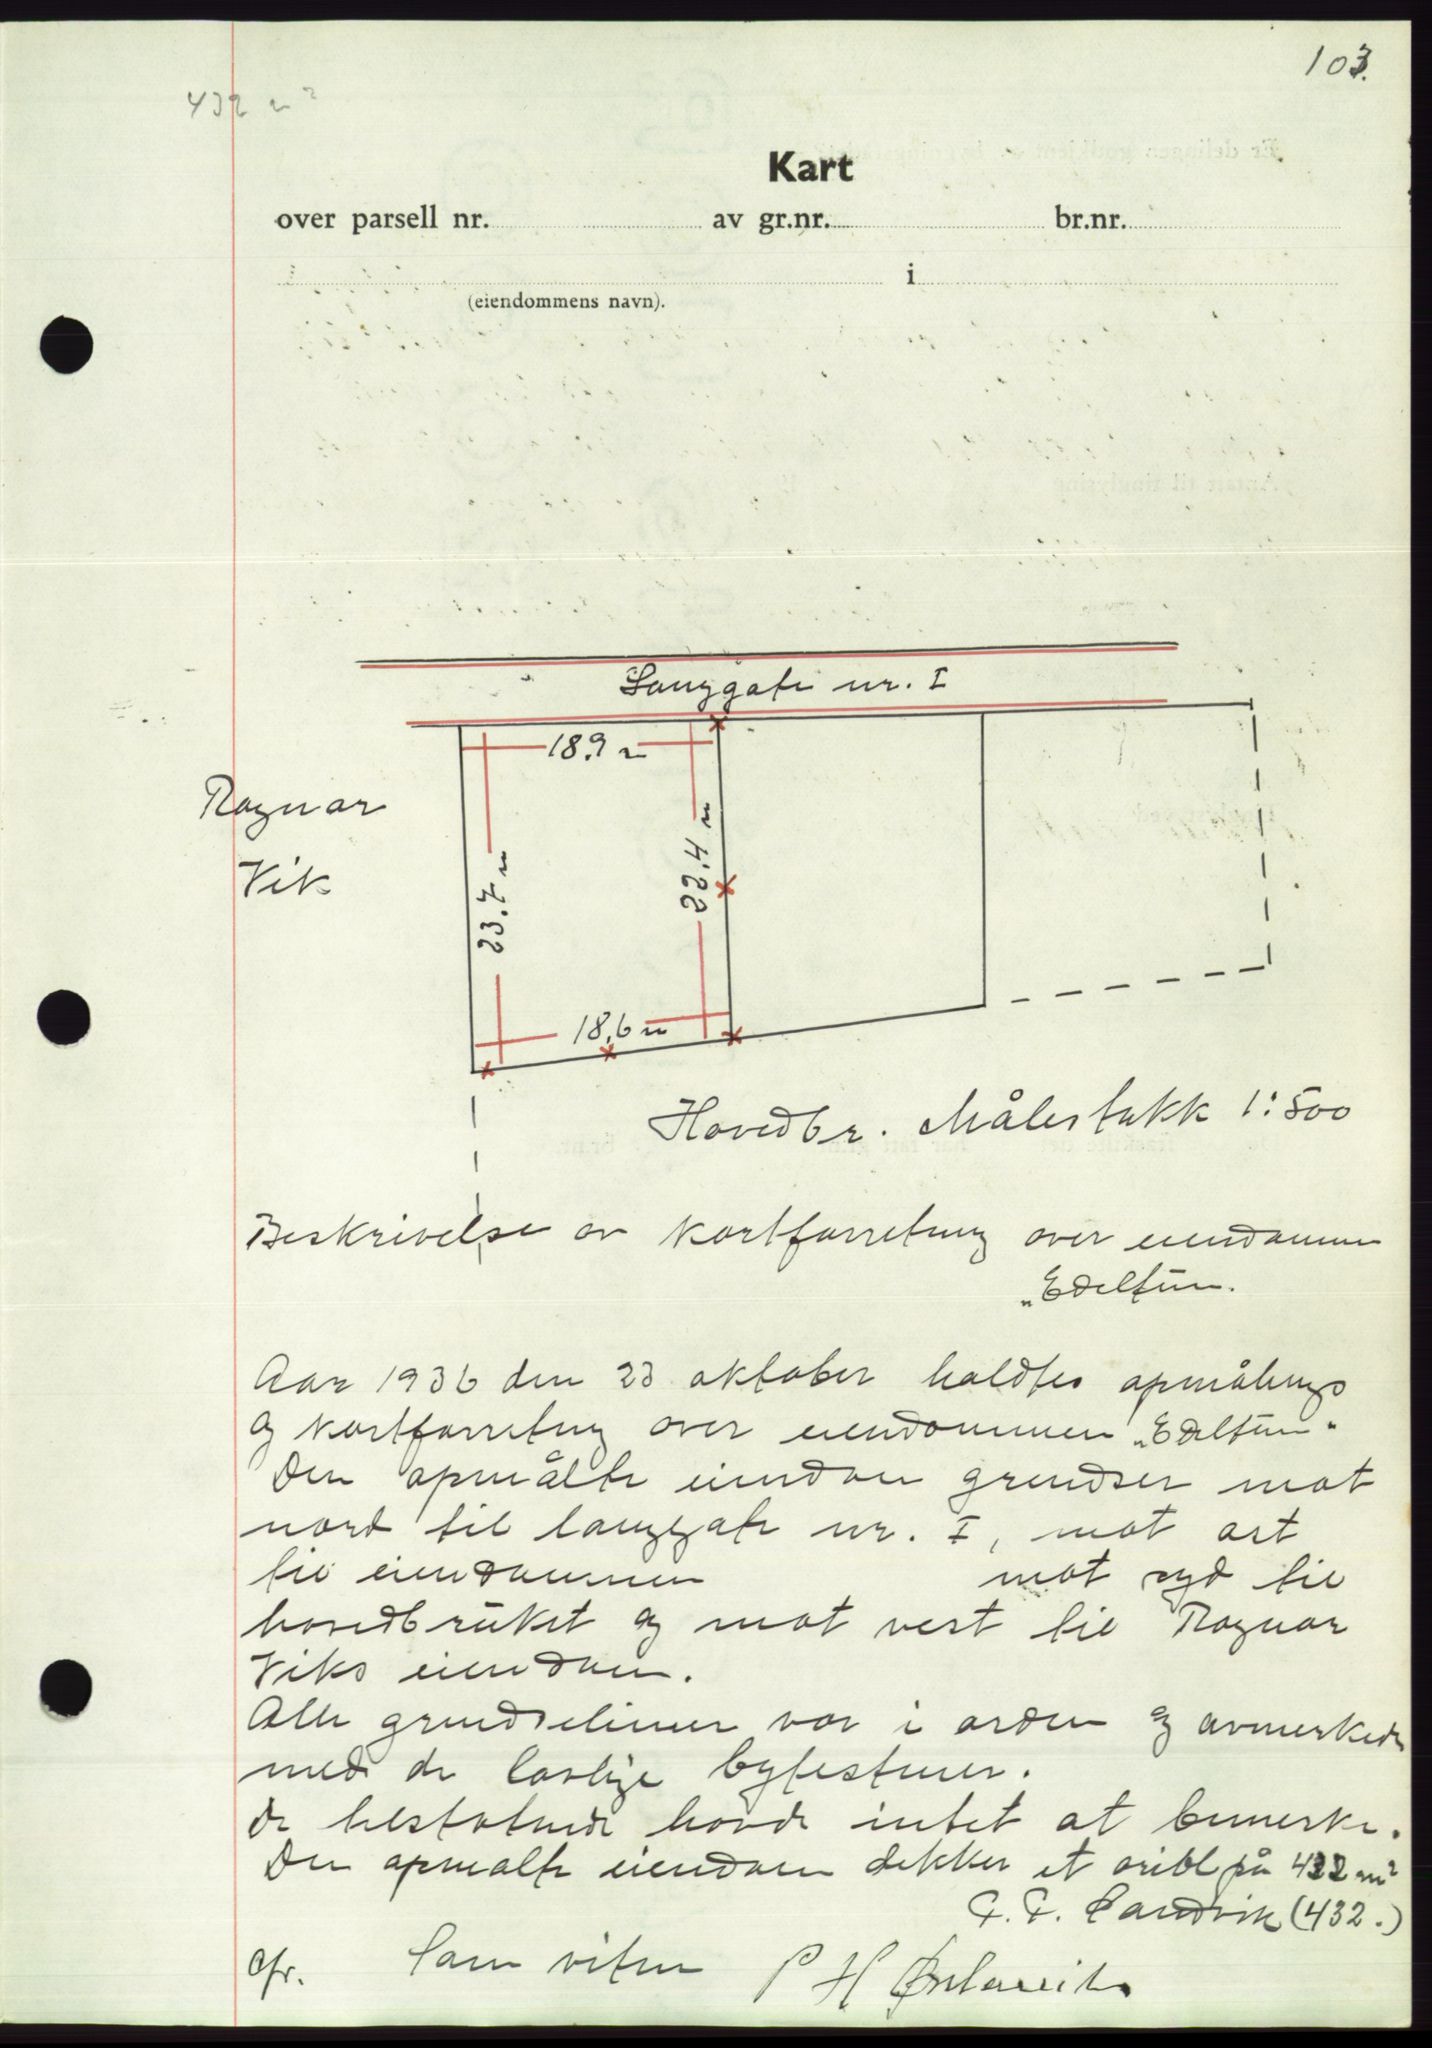 103.
432 m²
Kart
over parsell nr. av gr.nr. br.nr.
i
(eiendommens navn).
Langgate nr. I
18.9 m
Ragnar
Vik
23.7 m
22.4 m
18.6 m
Hovedbr. Målestokk 1:500
Beskrivelse av kartforretning over eiendommen
"Edeltun.
Aar 1936 den 23 oktober holdtes opmålings
og kartforretning over eiendommen "Edeltun"
Den opmålte eiendom grendser mot
nord til langgate nr. I, mot øst
til eiendommen mot syd til
hovedbruket og mot vest til Ragnar
Viks eiendom.
Alle grendselinier var i orden og avmerkede
med de lovlige byttesteiner.
De tilstetende havde intet at bemerke.
Den opmalte eiendom dekker et areal på 432 m²
Sandvik (432.)
Som viten P H